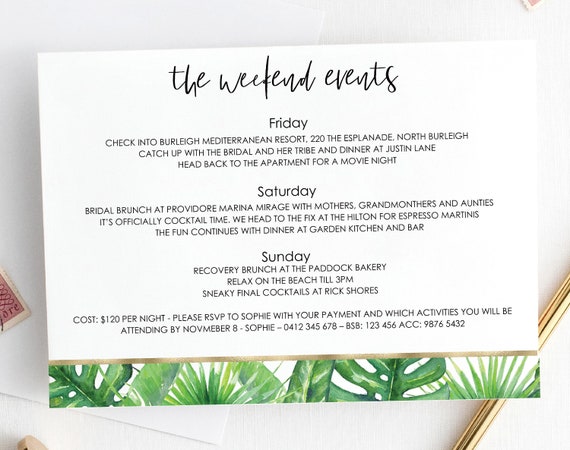 the weekend events
Friday
CHECK INTO BURLEIGH MEDITERRANEAN RESORT, 220 THE ESPLANADE, NORTH BURLEIGH
CATCH UP WITH THE BRIDAL AND HER TRIBE AND DINNER AT JUSTIN LANE
HEAD BACK TO THE APARTMENT FOR A MOVIE NIGHT
Saturday
BRIDAL BRUNCH AT PROVIDORE MARINA MIRAGE WITH MOTHERS, GRANDMONTHERS AND AUNTIES
IT'S OFFICIALLY COCKTAIL TIME. WE HEAD TO THE FIX AT THE HILTON FOR ESPRESSO MARTINIS
THE FUN CONTINUES WITH DINNER AT GARDEN KITCHEN AND BAR
Sunday
RECOVERY BRUNCH AT THE PADDOCK BAKERY
RELAX ON THE BEACH TILL 3PM
SNEAKY FINAL COCKTAILS AT RICK SHORES
COST: $120 PER NIGHT - PLEASE RSVP TO SOPHIE WITH YOUR PAYMENT AND WHICH ACTIVITIES YOU WILL BE
ATTENDING BY NOVMEBER 8 - SOPHIE – 0412 345 678 – BSB: 123 456 ACC: 9876 5432